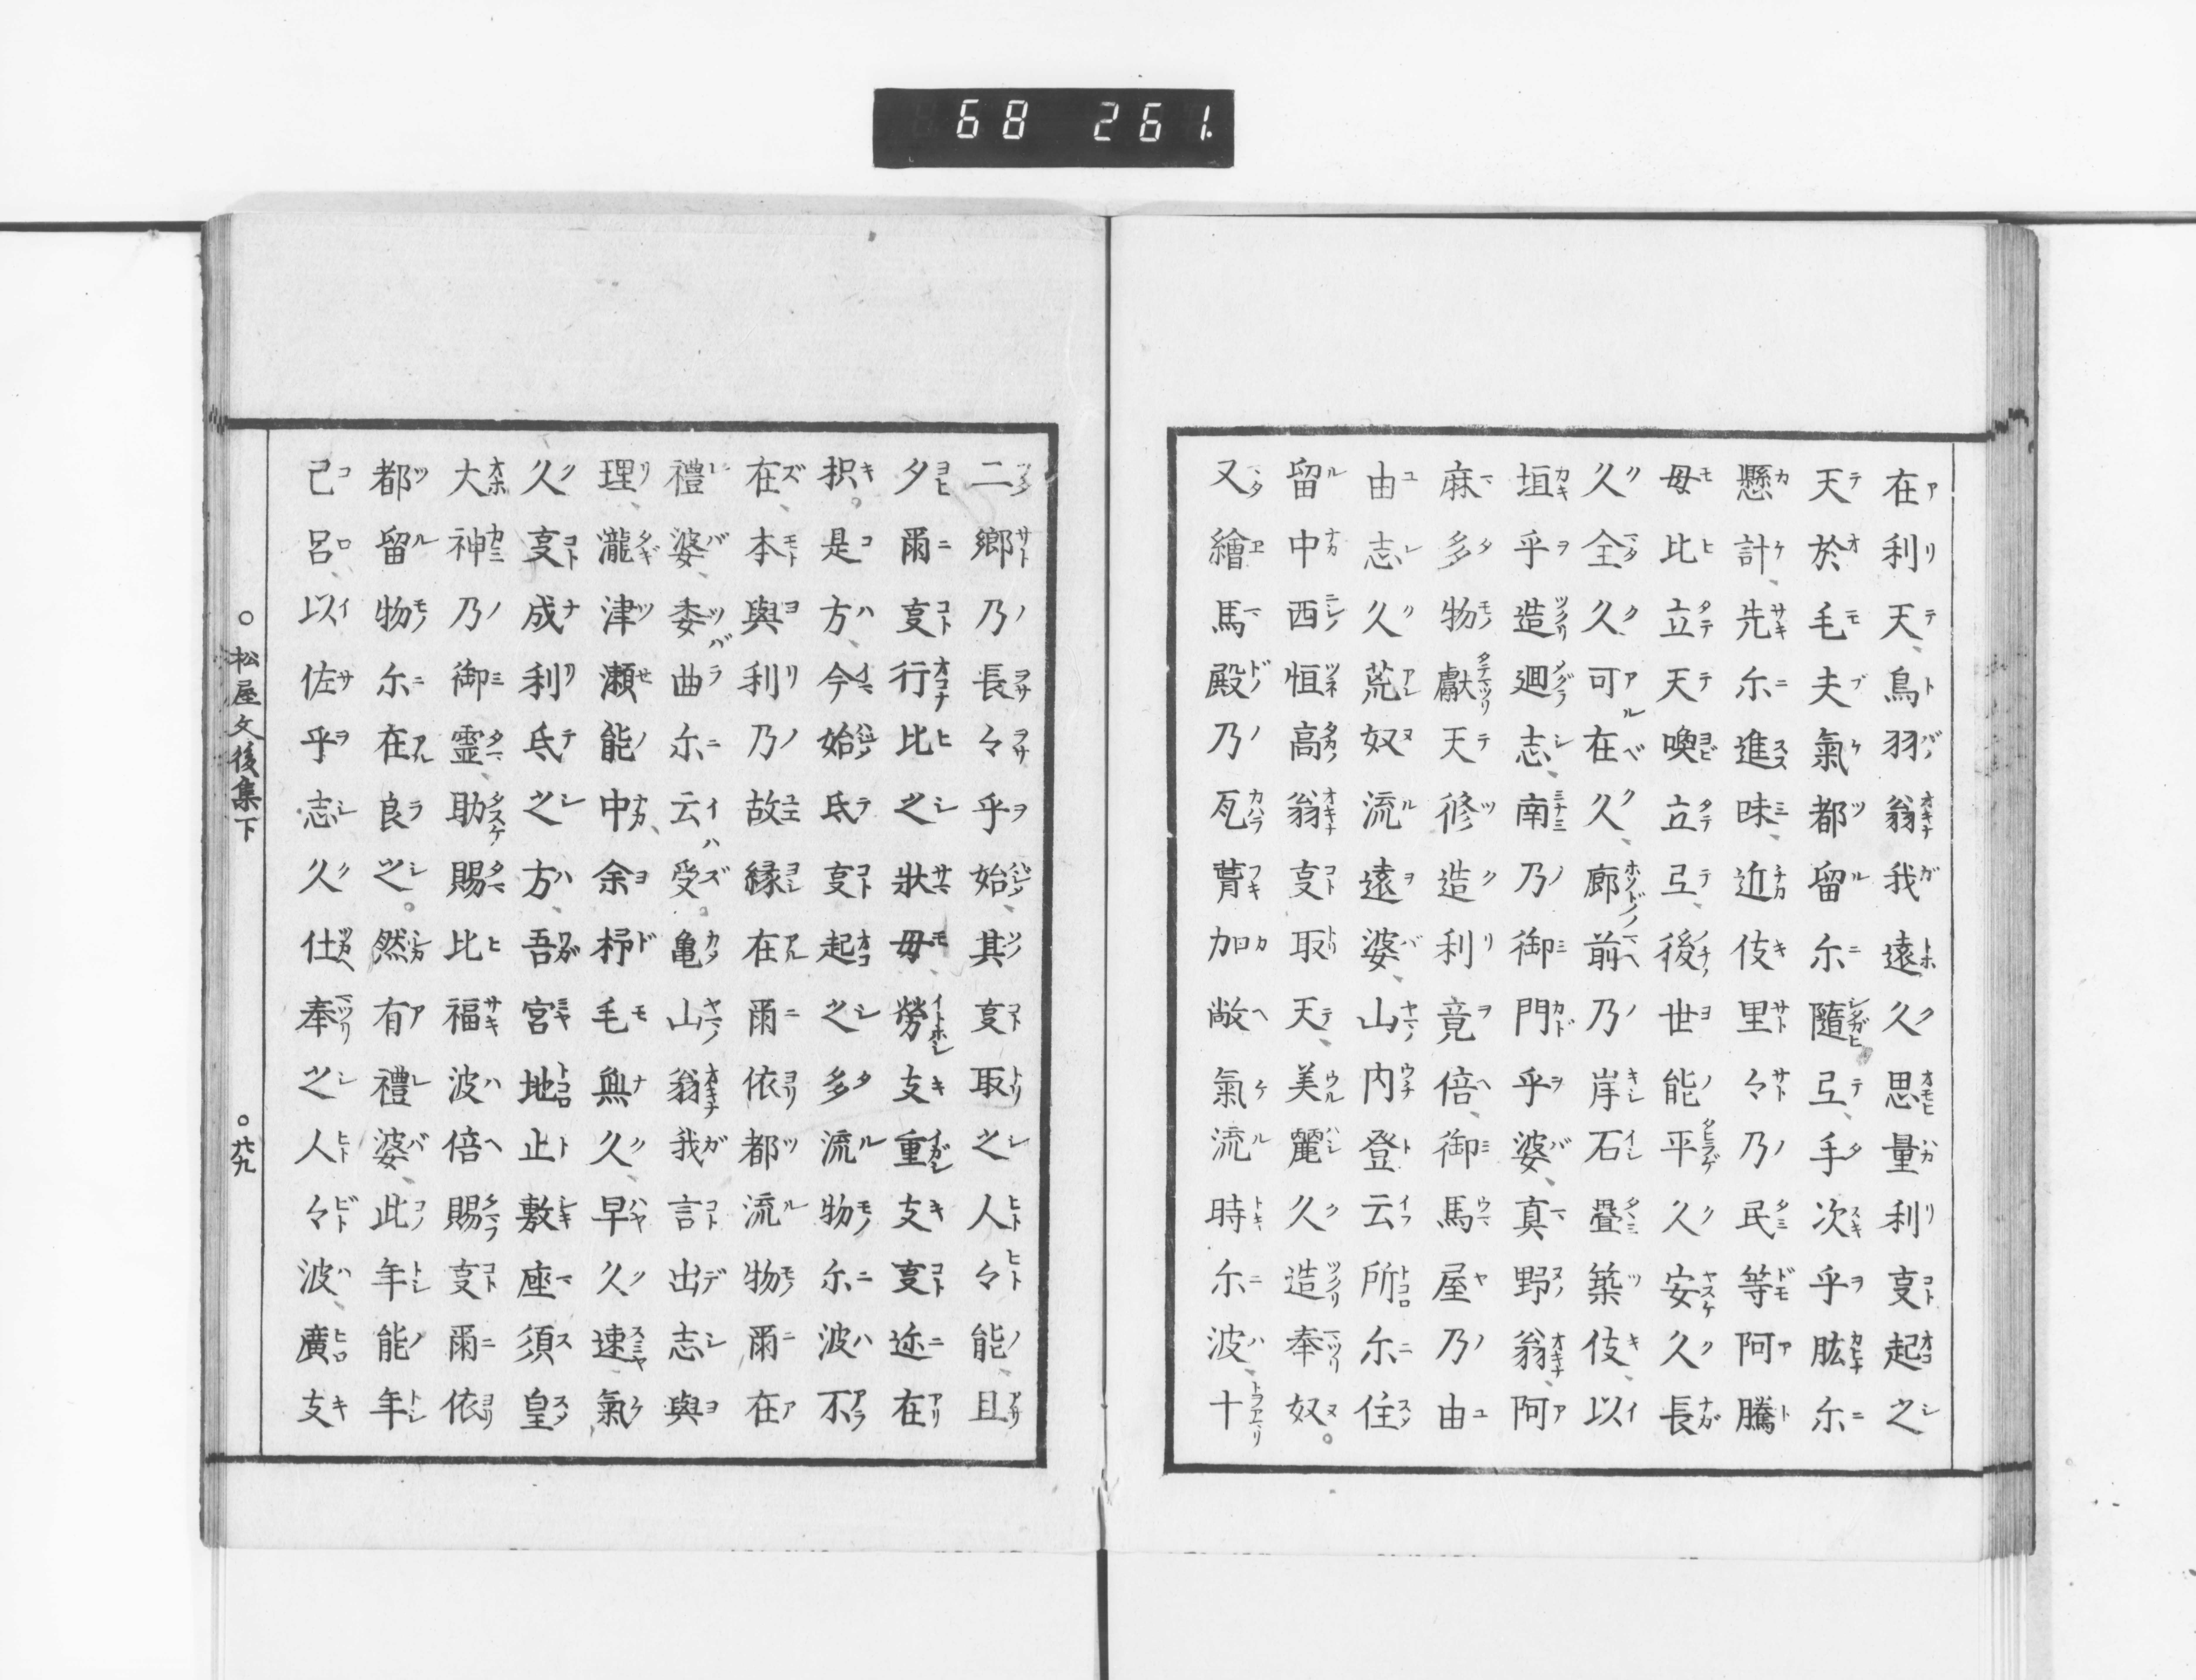 68 261.
在利天、鳥羽翁我遠久思量利㕝起之
天於毛夫氣都留尓隨弖、手次乎肱尓
懸計、先尓進味、近伎里々乃民等阿騰
毋比立天喚立弖、後世能平久安久長
久全久可在久、廊前乃岸石疊築伎、以
垣乎造廻志、南乃御門乎婆、真野翁、阿
麻多物獻天修造利竟倍、御馬屋乃由
由志久荒奴流遠婆、山内登云所尓住
留中西恒高翁㕝取天、美麗久造奉奴。
又繪馬殿乃瓦葺加敞氣流時尓波、十
二鄉乃長々乎始、其㕝取之人々能、且
夕爾㕝行比之狀毋、勞支重支㕝近在
枳。是方、今始氐㕝起之多流物尓波不
在、本與利乃故緣在爾依都流物爾在
禮婆、委曲尓云受。亀山翁我言出志與
理、瀧津瀬能中、余杼毛無久、早久速氣、
久㕝成利氐之方、吾宮地止敷座須皇
大神乃御霊助賜比福波倍賜㕝爾依
都留物尓在良之。然有禮婆、此年能年
己呂、以佐乎志久仕奉之人々波、廣支
○松屋文後集下 ○廿九